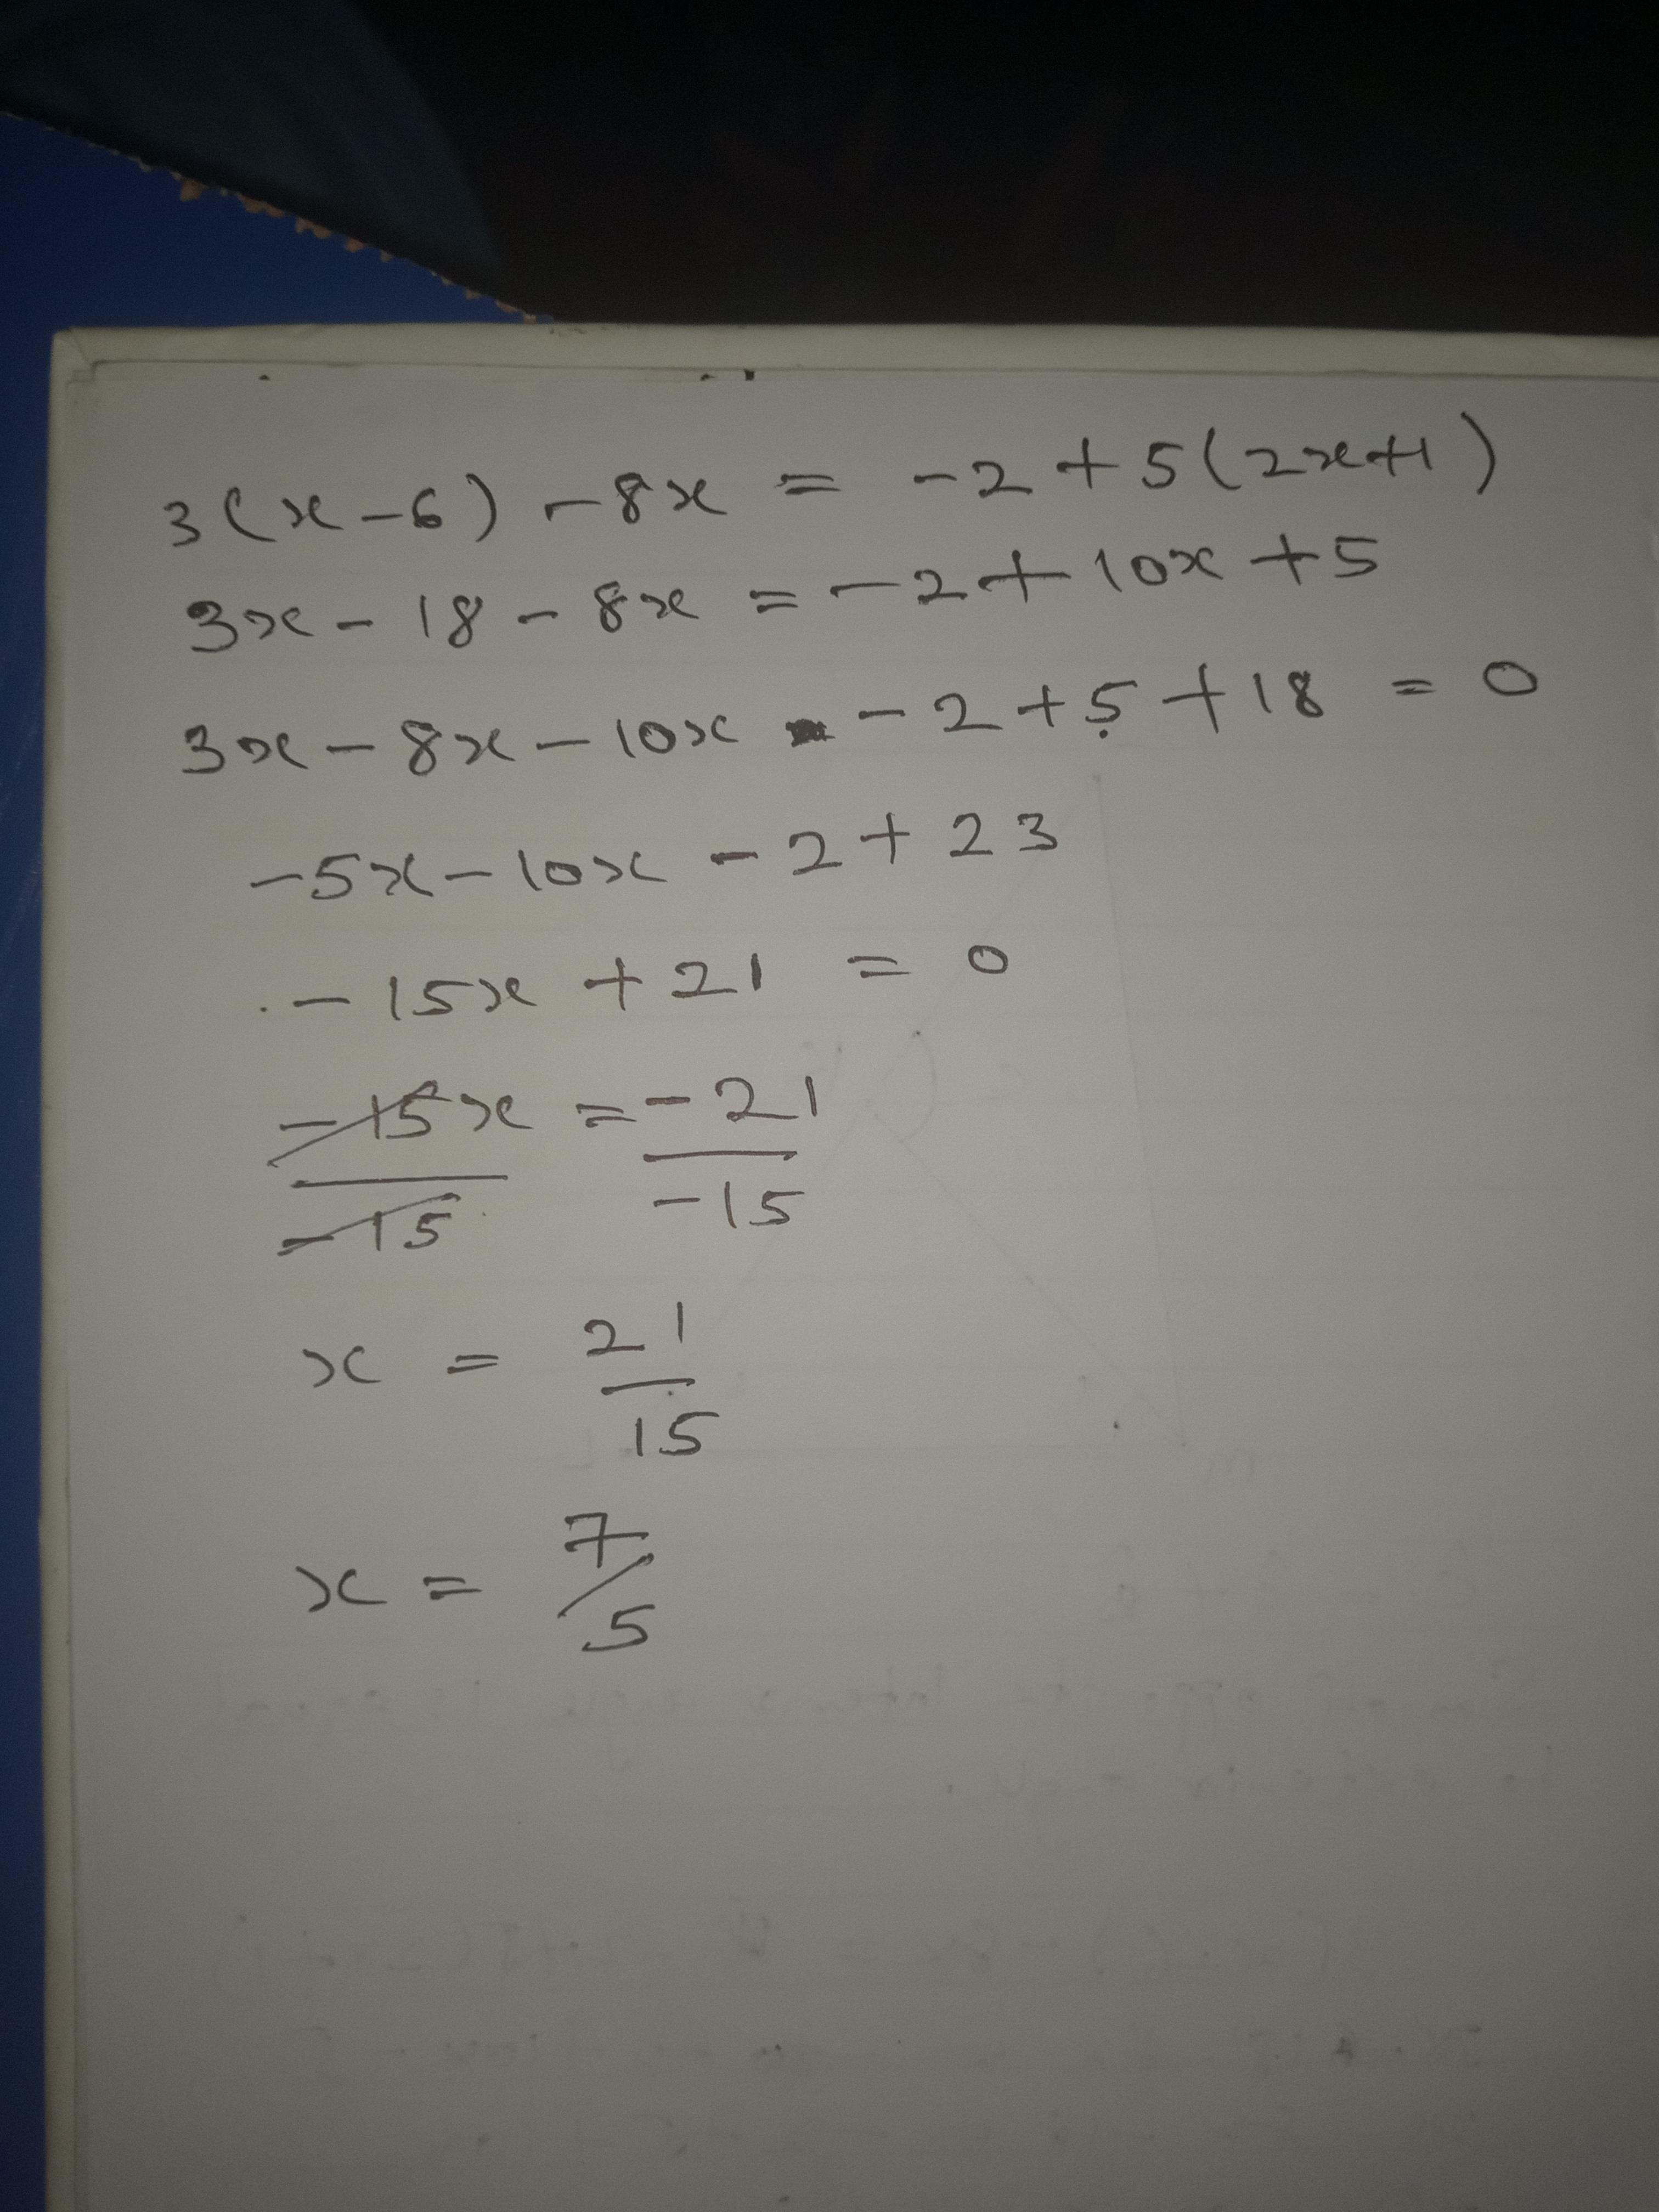 3(x-6) -8x = -2+5(2x+1)
3x - 18 - 8x = -2+10x+5
3x - 8x - 10x - 2+5+18 = 0
-5x-10x - 2+23
- 15x + 21 = 0
-15x/-15 = -21/-15
x = 21/15
x = 7/5